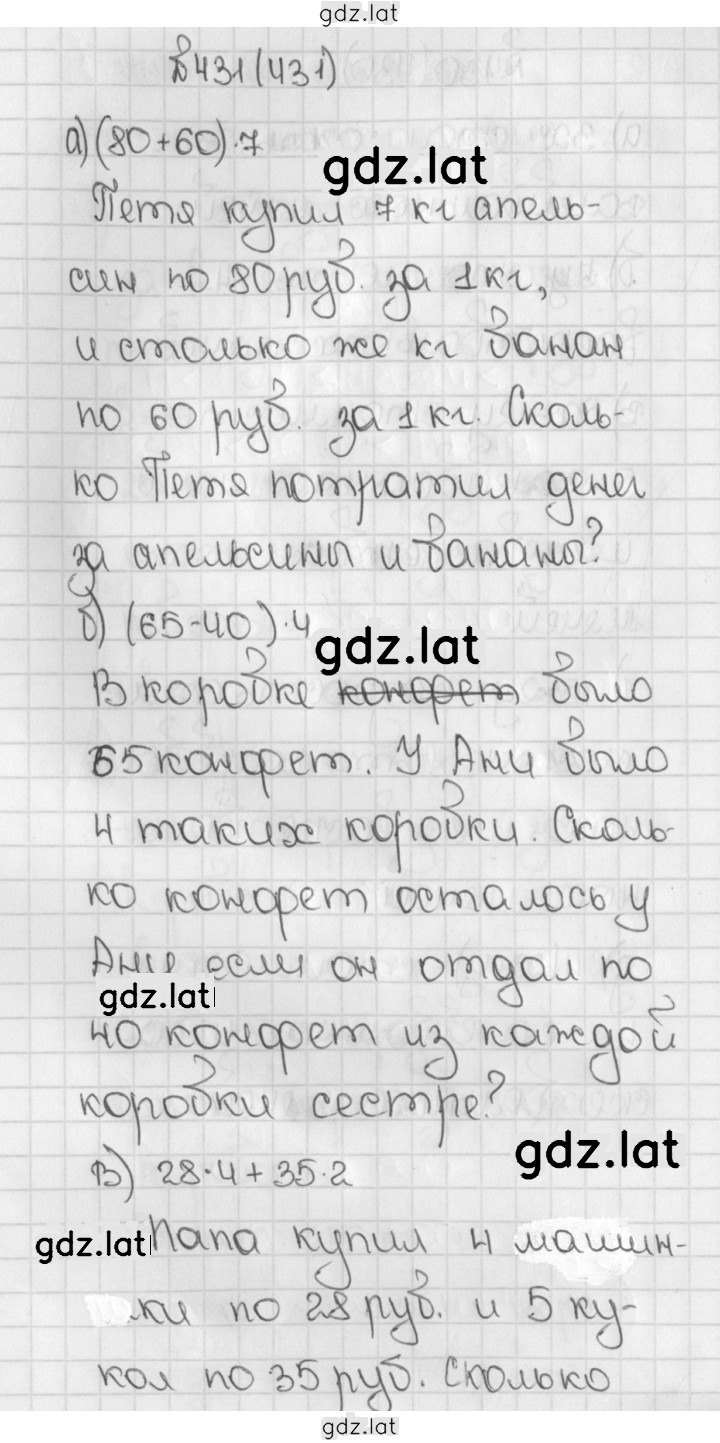 gdz.lat
№431(431)
а) (80+60)·7
gdz.lat
Петя купил 7 кг апель-
син по 80 руб. за 1 кг,
и столько же кг банан
по 60 руб. за 1 кг. Сколь-
ко Петя потратил денег
за апельсины и бананы?
б) (65-40)·4
gdz.lat
В коробке конфрет было
65 конфрет. У Ани было
4 таких коробки. Сколь-
ко конфрет осталось у
Ани если он отдал по
gdz.lat
40 конфрет из каждой
коробки сестре?
gdz.lat
В) 28·4+35·2
gdz.lat Папа купил 4 машин-
ки по 28 руб. и 5 ку-
кол по 35 руб. Сколько
gdz.lat